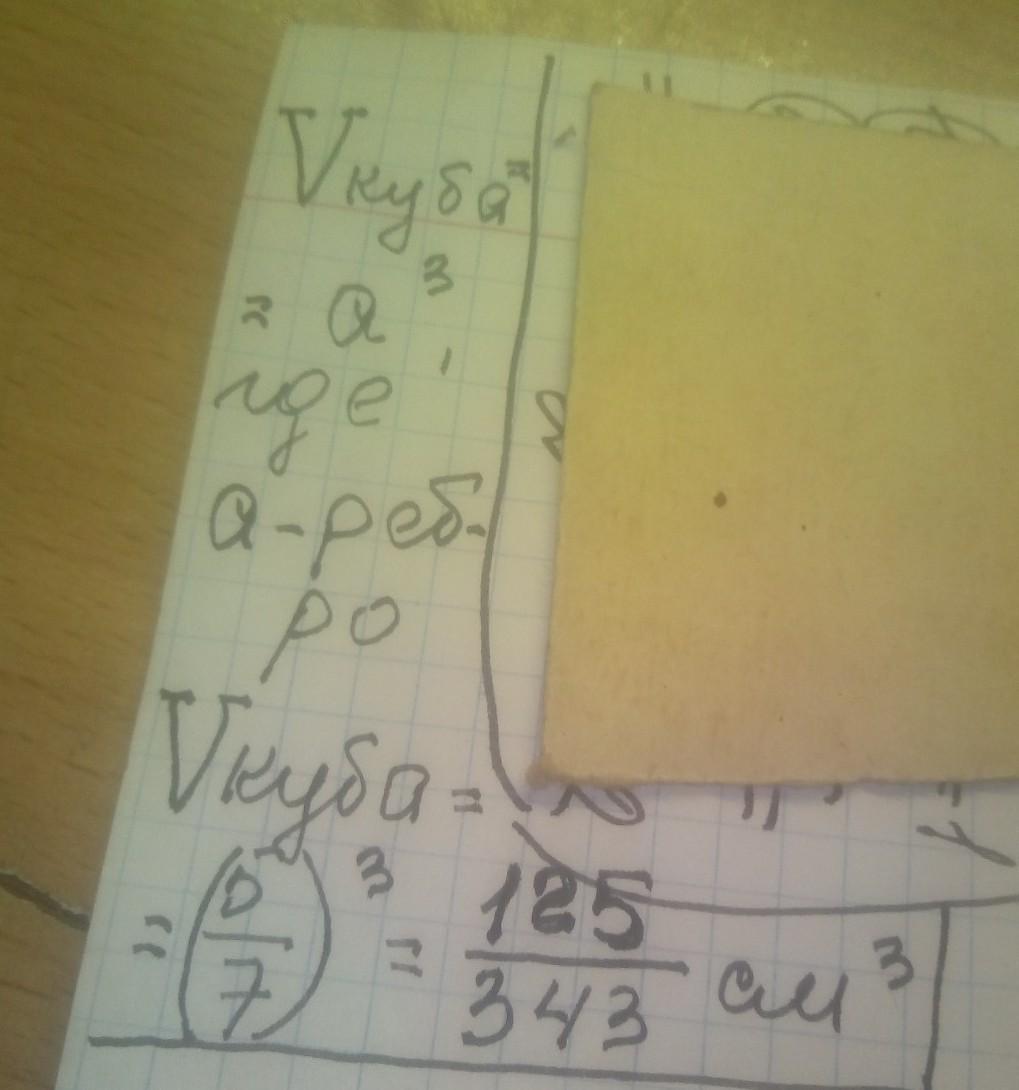 Vкуба =
= a³,
где
а - реб-
ро
Vкуба =
= (5/7)³ = 125/343 см³